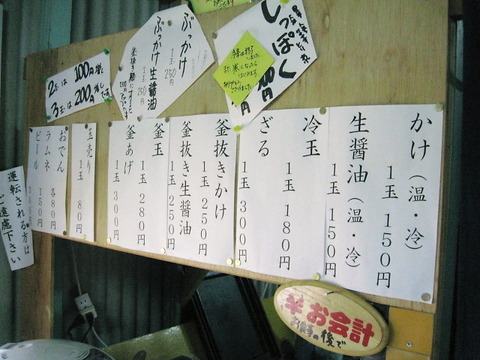 かけ（温・冷）
１玉 １５０円
生醤油（温・冷）
１玉 １５０円
冷玉
１玉 １８０円
ざる
１玉 ３００円
釜抜きかけ
１玉 ２５０円
釜抜き生醤油
１玉 ２５０円
釜玉
１玉 ２８０円
釜あげ
１玉 ３００円
玉売り
１玉 ８０円
おでん 各８０円
ラムネ １５０円
ビール
運転される方は
ご遠慮下さい
しっぽく
ぶっかけ
１玉 250円
ぶっかけ生醤油
2玉は100円
3玉は200円
お会計
後で